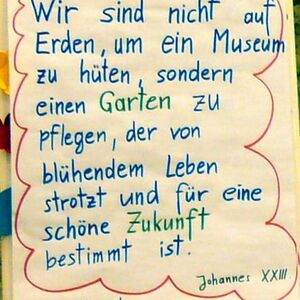 Wir sind nicht auf
Erden, um ein Museum
zu hüten, sondern
einen Garten zu
pflegen, der von
blühendem Leben
strotzt und für eine
schöne Zukunft
bestimmt ist.
Johannes XXIII.